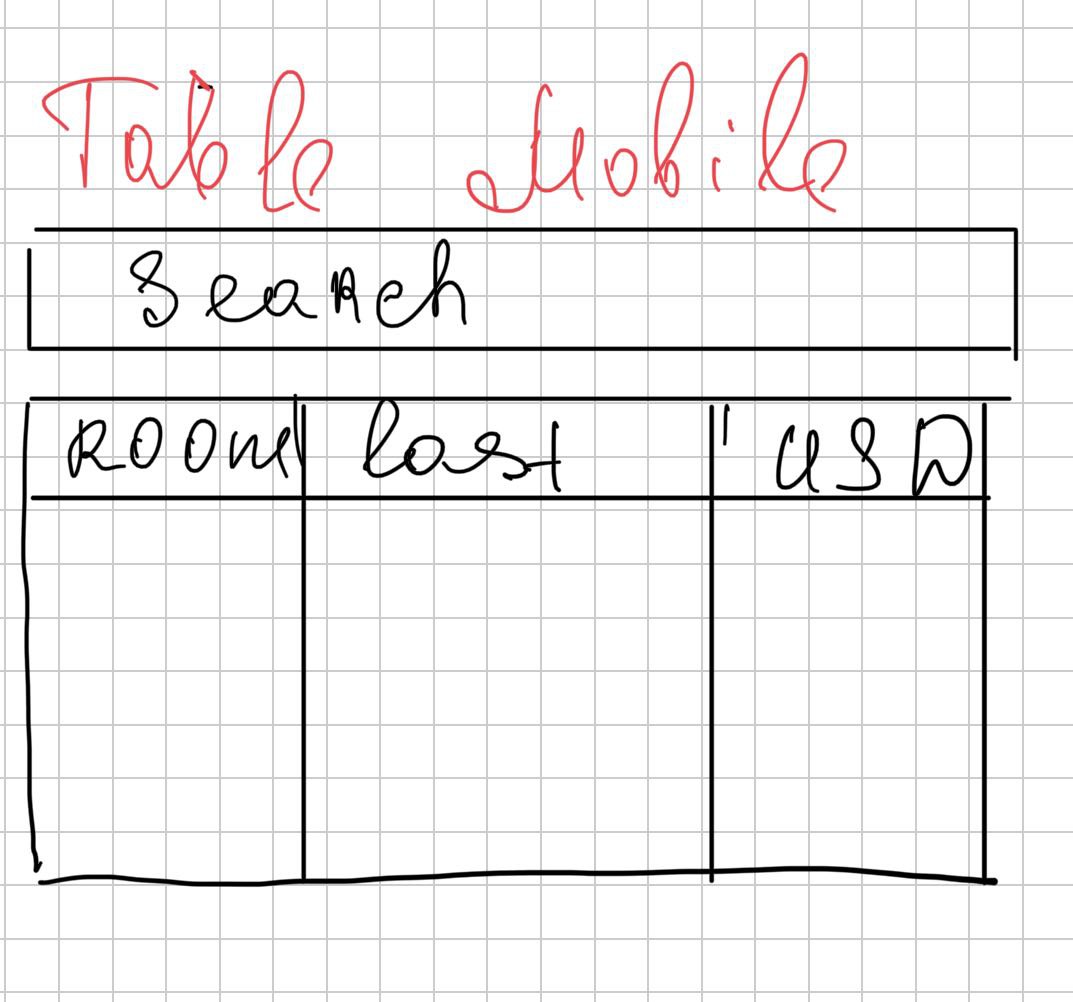 Table Mobile
Search
ROOM last USD